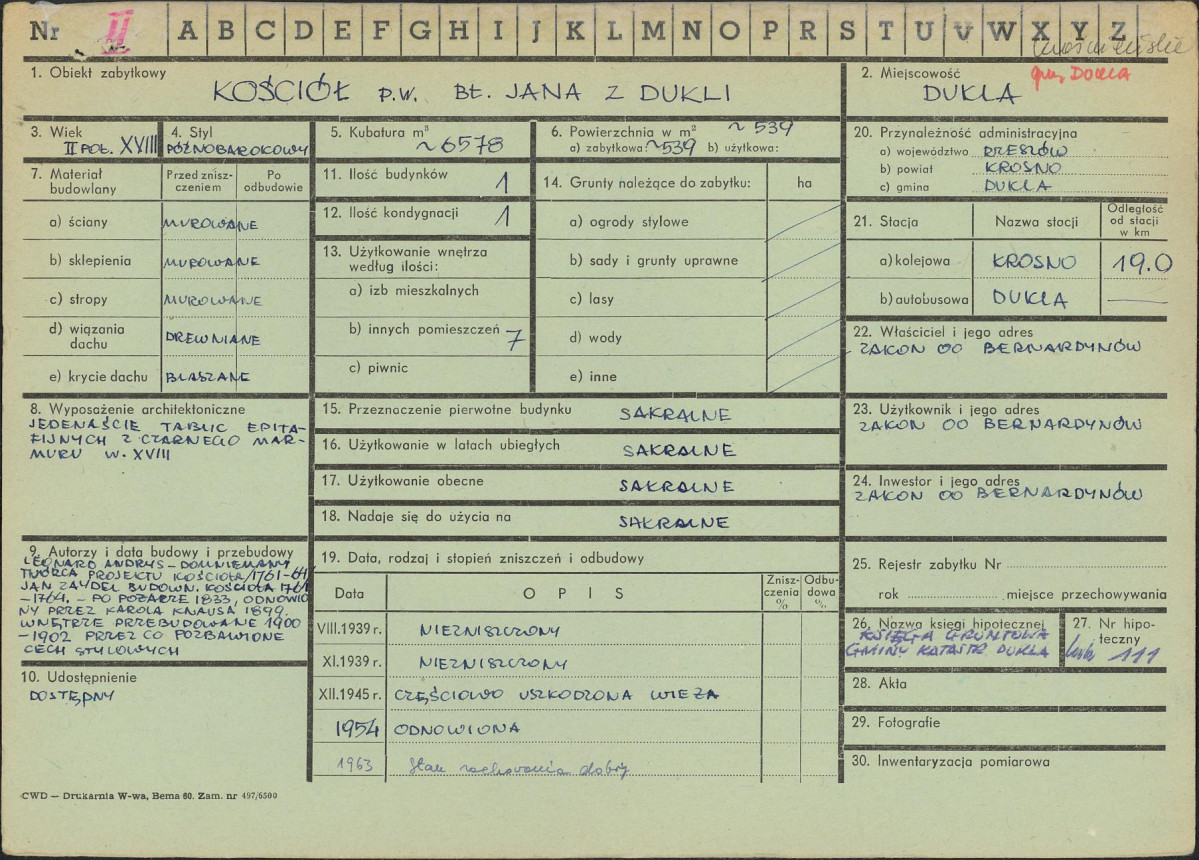 Nr II A B C D E F G H I J K L M N O P R S T U V W X Y Z
gm. DUKLA
1. Obiekt zabytkowy
KOŚCIÓŁ P.W. BŁ. JANA Z DUKLI
2. Miejscowość
DUKLA
3. Wiek
II POŁ. XVIII
4. Styl
PÓŹNOBAROKOWY
5. Kubatura m³
~6578
6. Powierzchnia w m² ~539
a) zabytkowa: ~539 b) użytkowa:
20. Przynależność administracyjna
a) województwo RZESZÓW
b) powiat KROSNO
c) gmina DUKLA
7. Materiał budowlany
Przed znisz-
czeniem
Po
odbudowie
a) ściany MUROWANE
b) sklepienia MUROWANE
c) stropy MUROWANE
d) wiązania
dachu DREWNIANE
e) krycie dachu BLASZANE
11. Ilość budynków 1
12. Ilość kondygnacji 1
13. Użytkowanie wnętrza
według ilości:
a) izb mieszkalnych
b) innych pomieszczeń 7
c) piwnic
14. Grunty należące do zabytku: ha
a) ogrody stylowe
b) sady i grunty uprawne
c) lasy
d) wody
e) inne
21. Stacja Nazwa stacji
Odległość
od stacji
w km
a) kolejowa KROSNO 19.0
b) autobusowa DUKLA —
22. Właściciel i jego adres
ZAKON OO BERNARDYNÓW
8. Wyposażenie architektoniczne
JEDENAŚCIE TABLIC EPITA-
FIJNYCH Z CZARNEGO MAR-
MURU W. XVIII
15. Przeznaczenie pierwotne budynku SAKRALNE
16. Użytkowanie w latach ubiegłych SAKRALNE
17. Użytkowanie obecne SAKRALNE
18. Nadaje się do użycia na SAKRALNE
23. Użytkownik i jego adres
ZAKON OO BERNARDYNÓW
24. Inwestor i jego adres
ZAKON OO BERNARDYNÓW
9. Autorzy i data budowy i przebudowy
LEONARD ANDRYS – DOMNIEMANY
TWÓRCA PROJEKTU KOŚCIOŁA/1761-64/
JAN ZAYDEL BUDOWN. KOŚCIOŁA 1761
-1764. – PO POŻARZE 1833, ODNOWIO
NY PRZEZ KAROLA KNAUSA 1899.
WNĘTRZE PRZEBUDOWANE 1900
-1902 PRZEZ CO POZBAWIONE
CECH STYLOWYCH
10. Udostępnienie
DOSTĘPNY
19. Data, rodzaj i stopień zniszczeń i odbudowy
Data OPIS
Znisz-
czenia
%
Odbu-
dowa
%
VIII.1939 r. NIEZNISZCZONY
XI.1939 r. NIEZNISZCZONY
XII.1945 r. CZĘŚCIOWO USZKODZONA WIEŻA
1954 ODNOWIONA
1963 Stan zachowania dobry
25. Rejestr zabytku Nr
rok miejsce przechowywania
26. Nazwa księgi hipotecznej
KSIĘGA GRUNTOWA
GMINY KATASTR DUKLA
27. Nr hipo-
teczny
111
28. Akta
29. Fotografie
30. Inwentaryzacja pomiarowa
CWD — Drukarnia W-wa, Bema 60. Zam. nr 497/6500